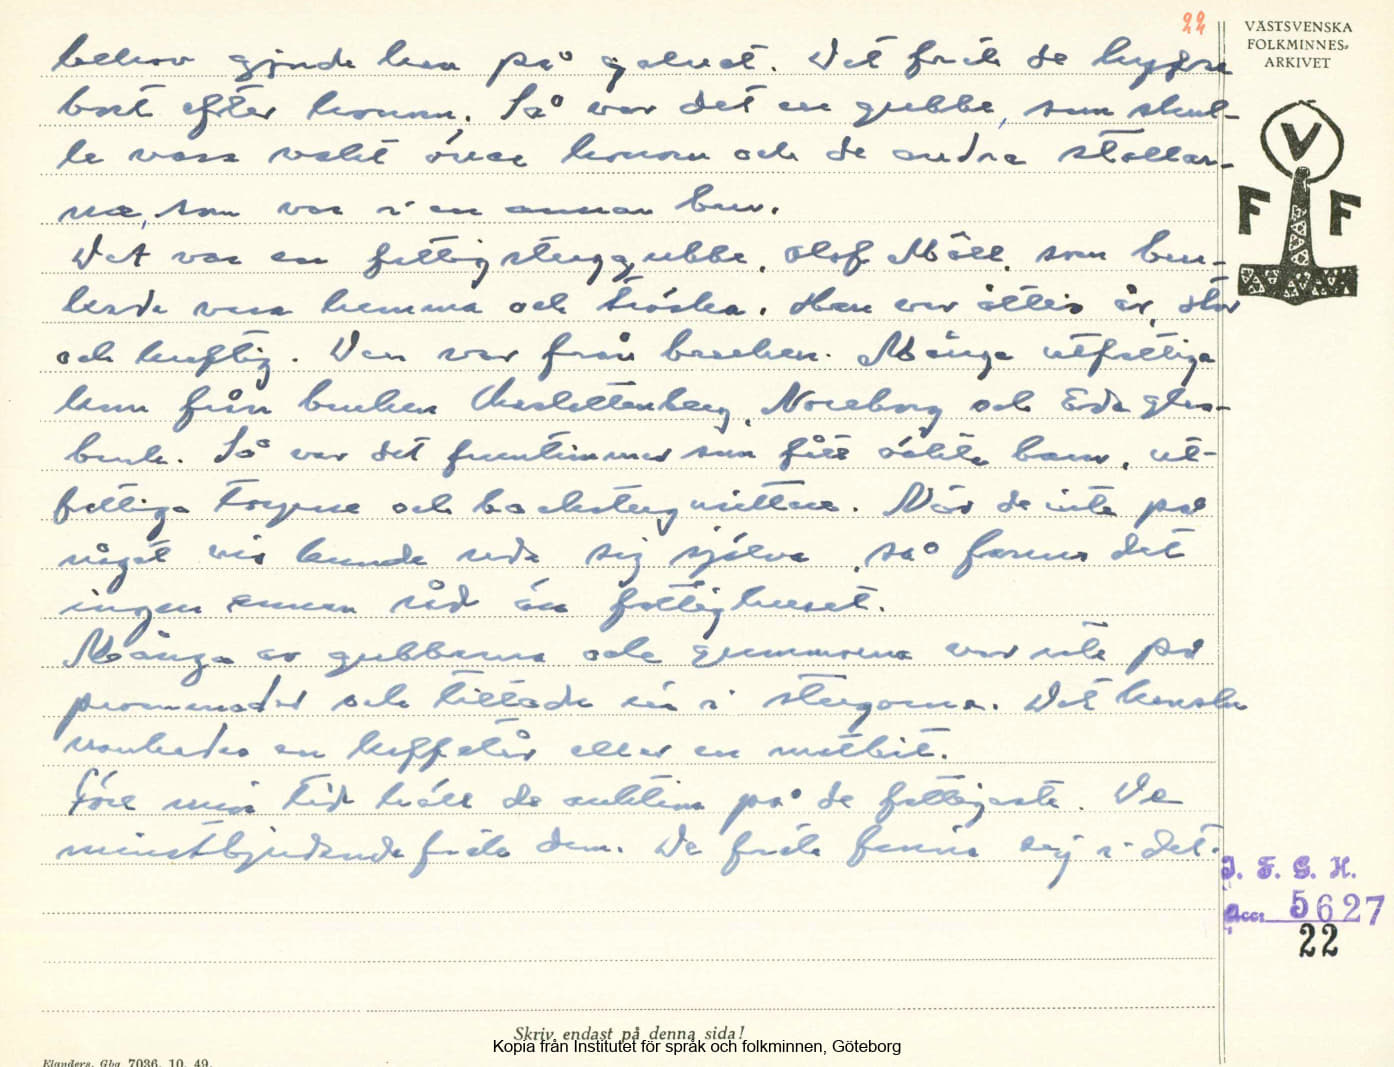 22
VÄSTSVENSKA
FOLKMINNES-
ARKIVET
V
F F
behov gjorde han på golvet. Det fick de
bort efter honom. Så var det en gubbe, som skul-
le vara vakt över honom och de andra stollar-
na, som var i en annan bur.
Det var en fattigstuggubbe, Olof Måll, som
vara hemma och tröska. Han var åttio år, stor
och kraftig. Den var från bruken. Många utfattiga
kom från bruken Charlottenberg, Noreborg och Eda glas-
bruk. Så var det fruntimmer som fått oäkta barn, ut-
fattiga torpare och backstugusittare. När de inte på
något vis kunde reda sig själva, så fanns det
ingen annan råd än fattighuset.
Många av gubbarna och gummorna var ute på
promenader och tittade in i stugorna. Det kanske
vankades en kaffetår eller en matbit.
Före min tid höll de auktion på de fattigaste. De
minstbjudande fick dem. De fick finna sig i det.
I. F. G. H.
Acc: 5627
22
Skriv endast på denna sida!
Kopia från Institutet för språk och folkminnen, Göteborg
Elanders, Gbg 7036. 10. 49.